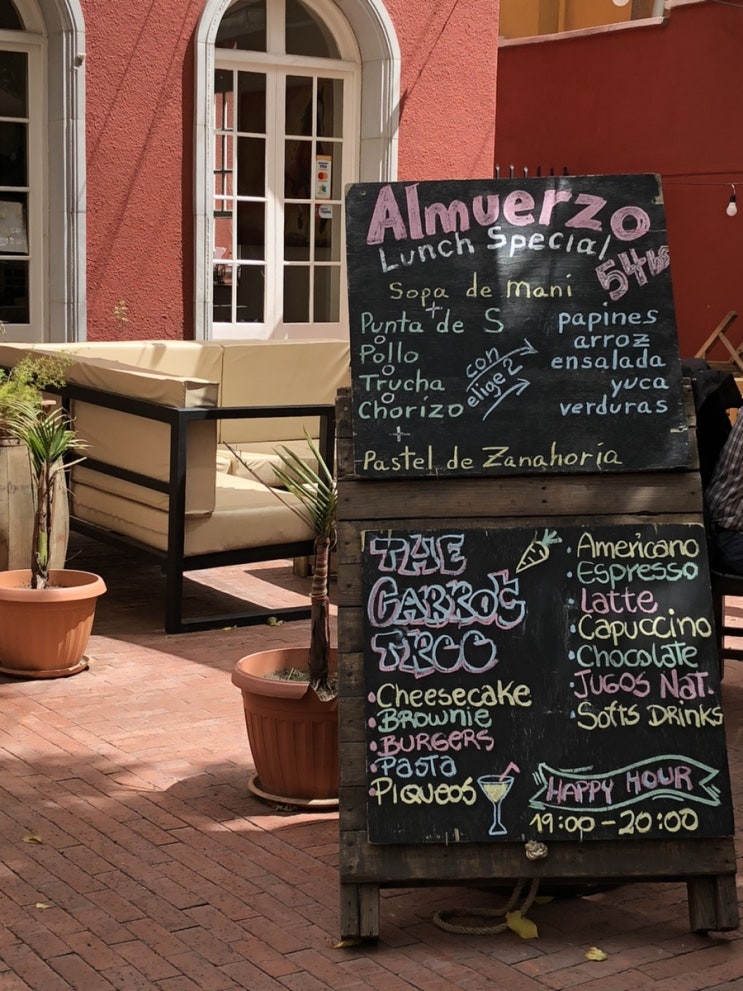 Almuerzo
Lunch Special
54 bs
Sopa de mani
+
Punta de S
o
Pollo
o
Trucha
o
Chorizo
con
elige 2
papines
arroz
ensalada
yuca
verduras
+
Pastel de Zanahoria
THE
CARROT
TREE
Cheesecake
Brownie
Burgers
Pasta
Piqueos
Americano
Espresso
Latte
Capuccino
Chocolate
Jugos Nat.
Softs Drinks
Happy Hour
19:00-20:00